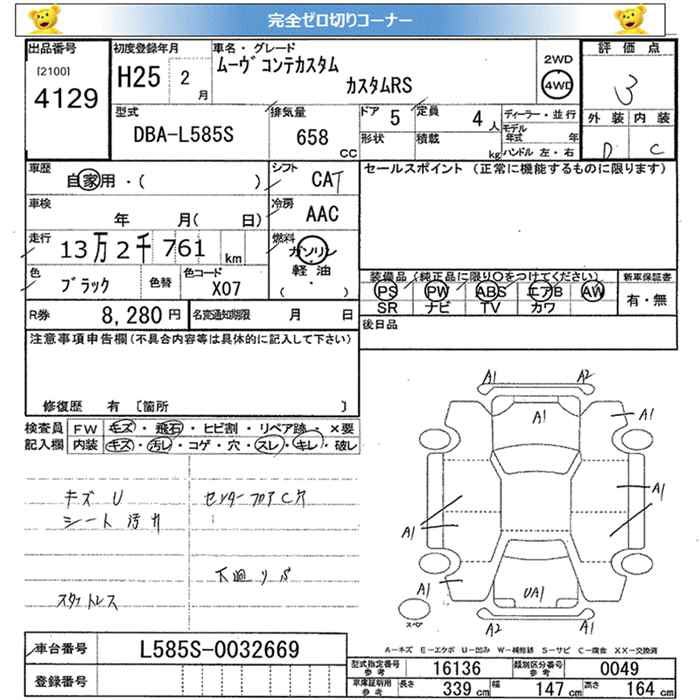 完全ゼロ切りコーナー
出品番号 初度登録年月 車名・グレード 評価点
[2100] 4129 H25 2月 ムーヴ コンテカスタム カスタムRS 2WD 4WD 3
型式 排気量 ドア 5 定員 4人 ディーラー・並行 外装 内装
DBA-L585S 658 CC 形状 積載 kg モデル年式 年 ハンドル 左・右 D C
車歴 自家用・( ) シフト CAT セールスポイント (正常に機能するものに限ります)
車検 年 月( 日) 冷房 AAC
走行 13万2千761 km 燃料 ガソリン 軽油 ・ ( )
色 ブラック 色替 色コード X07
装備品(純正品に限り○をつけてください) 新車保証書
PS PW ABS エアB AW 有・無
SR ナビ TV カワ
R券 8,280円 名変通知期限 月 日 後日品
注意事項申告欄(不具合内容等は具体的に記入して下さい)
修復歴 有 [箇所 ]
検査員 FW キズ・飛石・ヒビ割・リペア跡・×要
記入欄 内装 キズ・汚レ・コゲ・穴・スレ・キレ・破レ
キズ U センターフロアC穴
シート汚れ
下廻りサビ
スタットレス
A1 A2
A1 A1
A1 A1
A1 UA1
スペア A2 A1
A-キズ E-エクボ U-凹み W-補修跡 S-サビ C-腐食 XX-交換済
車台番号 L585S-0032669
型式指定番号 参考 16136 類別区分番号 参考 0049
登録番号
車庫証明用 参考 長さ 339 cm 幅 147 cm 高さ 164 cm